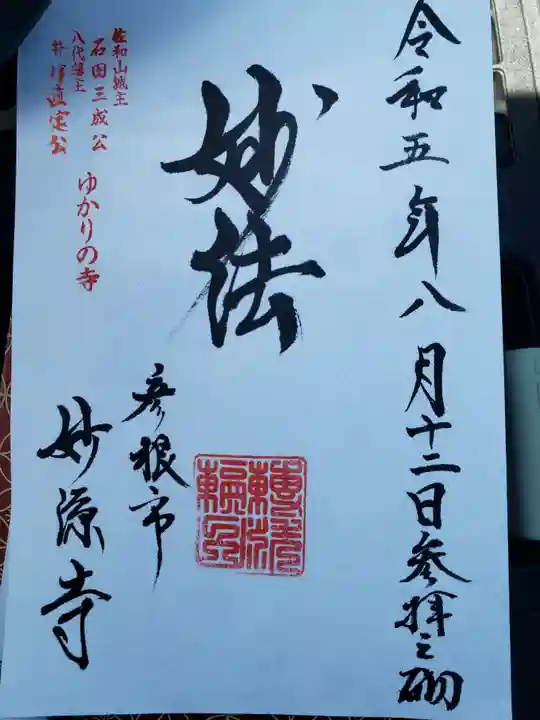 令和五年八月十二日参拝之砌
妙法
彦根市
妙源寺
佐和山城主
石田三成公
八代藩主
井伊直定公
ゆかりの寺